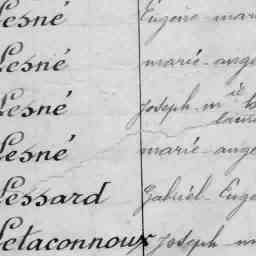 Lesné Eugène-mari
Lesné marie-ange
Lesné Joseph-m ie
Lesné marie-ange
Lessard Gabriel-Euge
Letaconnoux Joseph-m